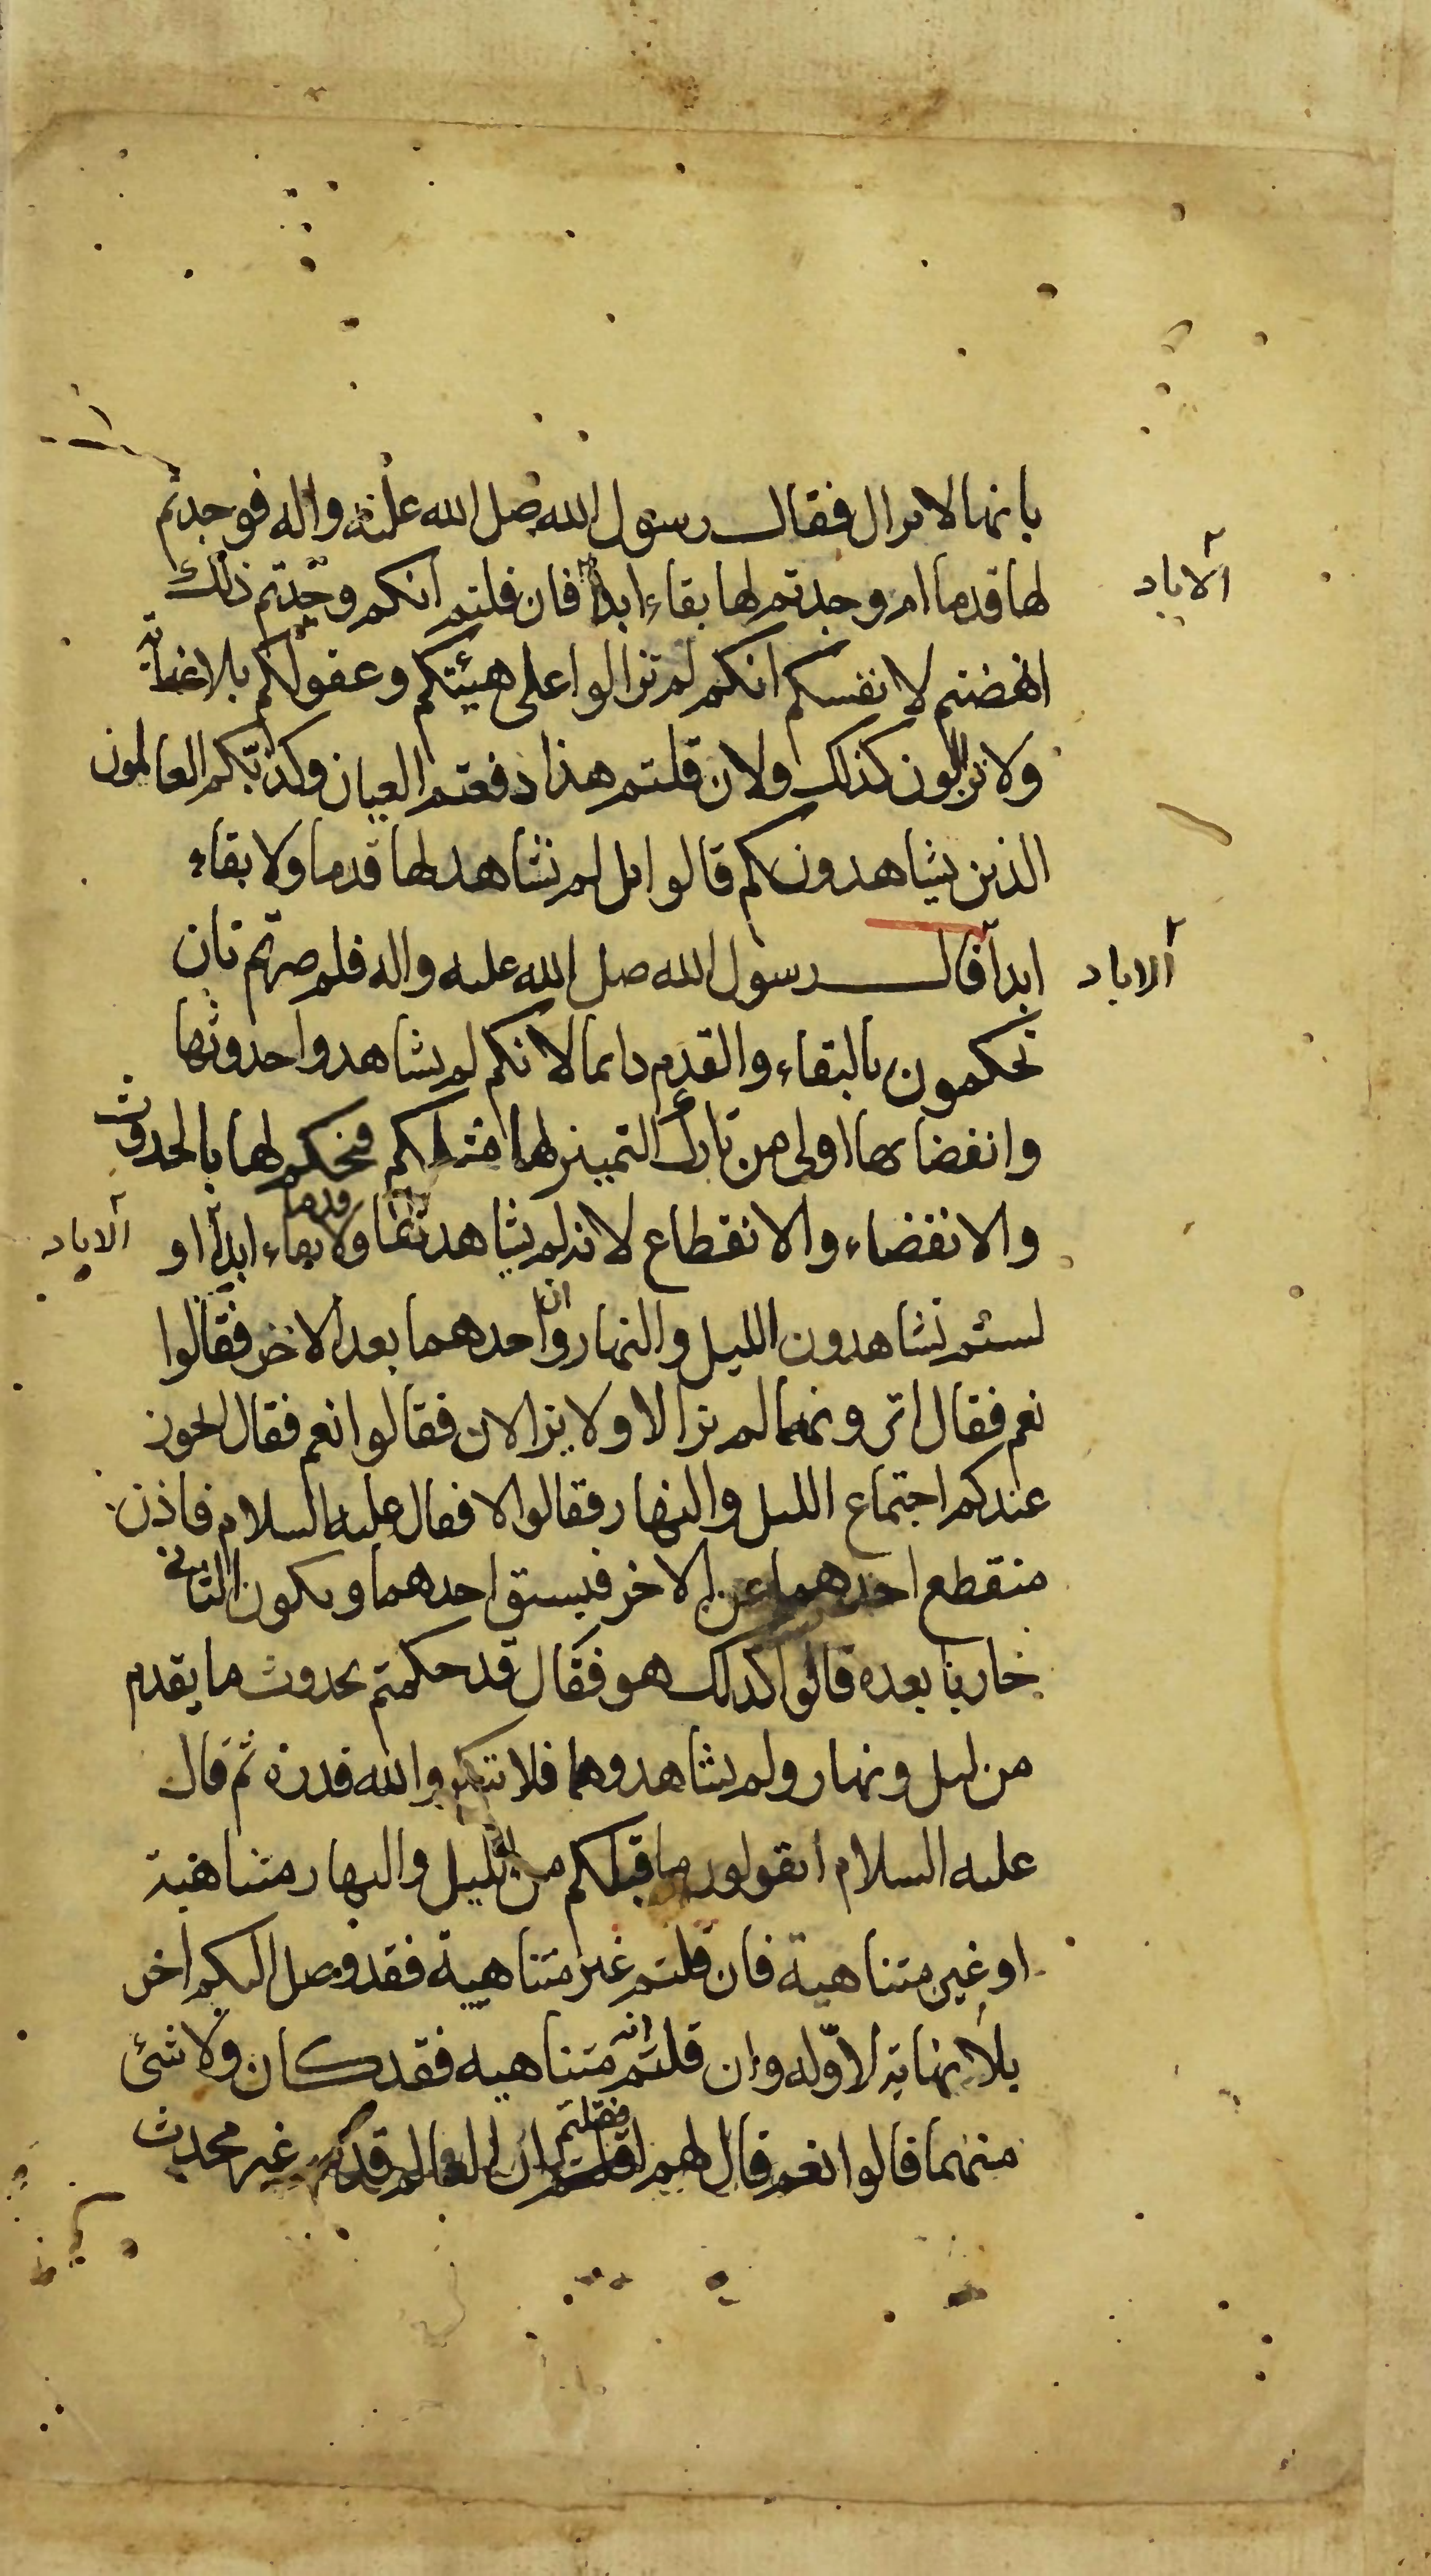 بانها لا تزال فقال رسول الله صلى الله عليه واله فوجدتم
لها قدما ام وجدتم لها بقاء ابدا فان قلتم انكم وجدتم ذلك
الاباد
انهضتم لانفسكم انكم لم تزالوا على هيئتكم وعقولكم بلا نهاية
ولا تزالون كذلك ولان قلتم هذا دفعتم العيان وكذبكم العالمون
الذين يشاهدونكم قالوا بل لم نشاهد لها قدما ولا بقاء
ابدا قال رسول الله صلى الله عليه واله فلم صرتم بان
الاباد
تحكمون بالبقاء والقدم دائما لانكم لم يشاهدوا حدوثها
وانقضاها اولى من تارك التمييز لها مثلكم فيحكم لها بالحدوث
والانقضاء والانقطاع لانه لم يشاهد لها قدما ولا بقاء ابدا او
الاباد
لستم تشاهدون الليل والنهار وان احدهما بعد الاخر فقالوا
نعم فقال اترونهما لم يزالا ولا يزالان فقالوا نعم فقال ايجوز
عندكم اجتماع الليل والنهار فقالوا لا فقال عليه السلام فاذن
منقطع احدهما عن الاخر فيسبق احدهما ويكون الثاني
جاريا بعده قالوا كذلك هو فقال قد حكمتم بحدوث ما يقدم
من ليل ونهار ولم يشاهدوهما فلا تنكروا لله قدرة ثم قال
عليه السلام اتقولون ما قبلكم من الليل والنهار متناهية
او غير متناهية فان قلتم غير متناهية فقد وصل اليكم اخر
بلا نهاية لاوله وان قلتم انه متناهيه فقد كان ولا شئ
منهما قالوا نعم قال لهم فقلتم ان العالم قديم غير محدث